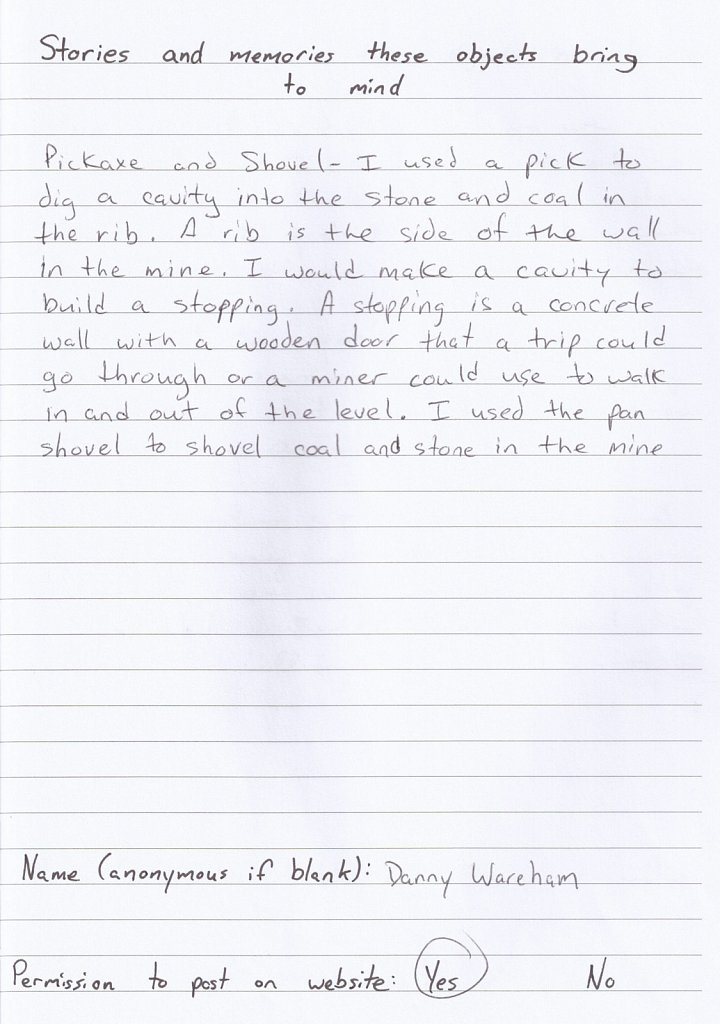 Stories and memories these objects bring
to mind
Pickaxe and Shovel- I used a pick to
dig a cavity into the stone and coal in
the rib. A rib is the side of the wall
in the mine. I would make a cavity to
build a stopping. A stopping is a concrete
wall with a wooden door that a trip could
go through or a miner could use to walk
in and out of the level. I used the pan
shovel to shovel coal and stone in the mine
Name (anonymous if blank): Danny Wareham
Permission to post on website: Yes No